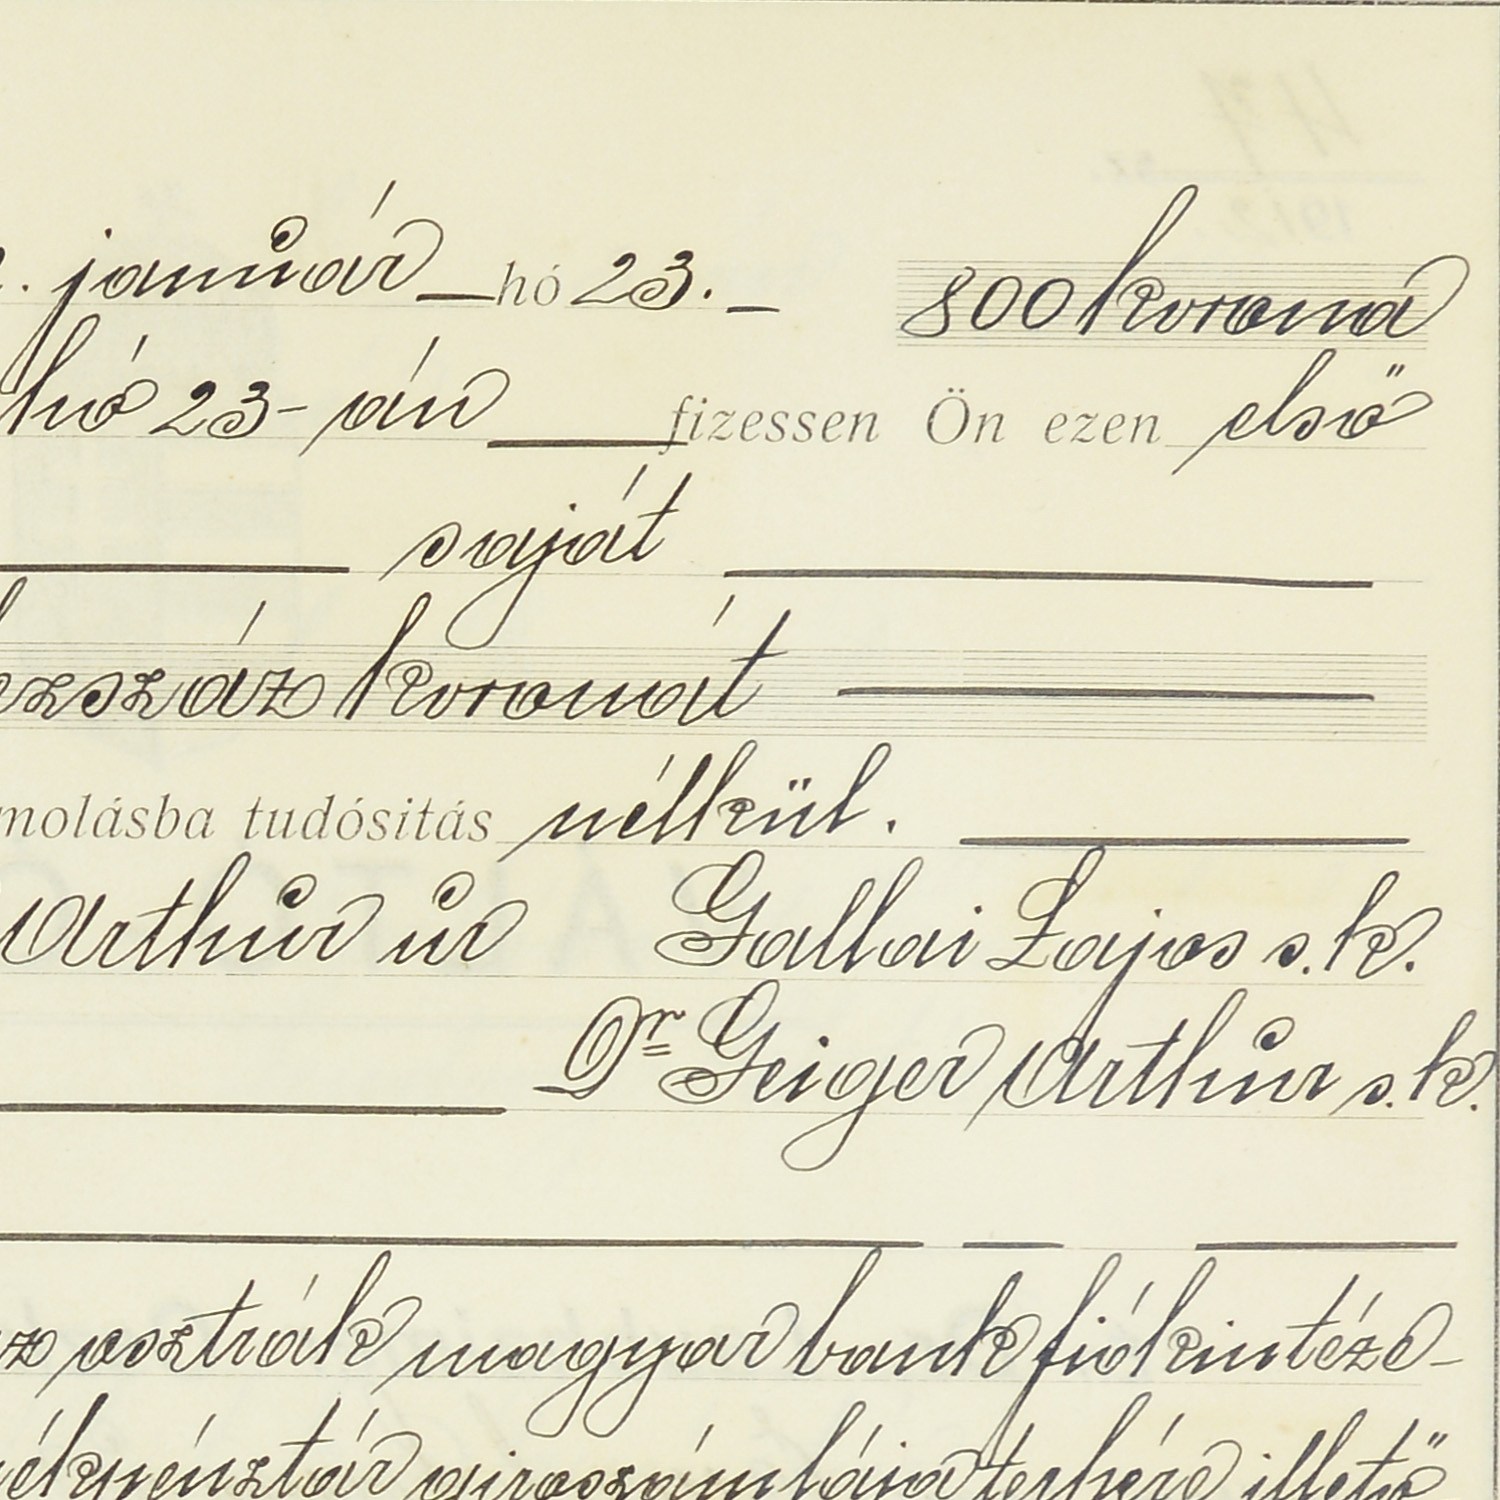 . január hó 23. 800 korona
hó 23-án fizessen Ön ezen első
saját
száz koronát
molásba tudósitás nélkül.
Arthur úr Gallai Lajos s.k.
Dr Geiger Arthur s.k.
az osztrák magyar bank fiókintéze-
girószámlája terhére illető